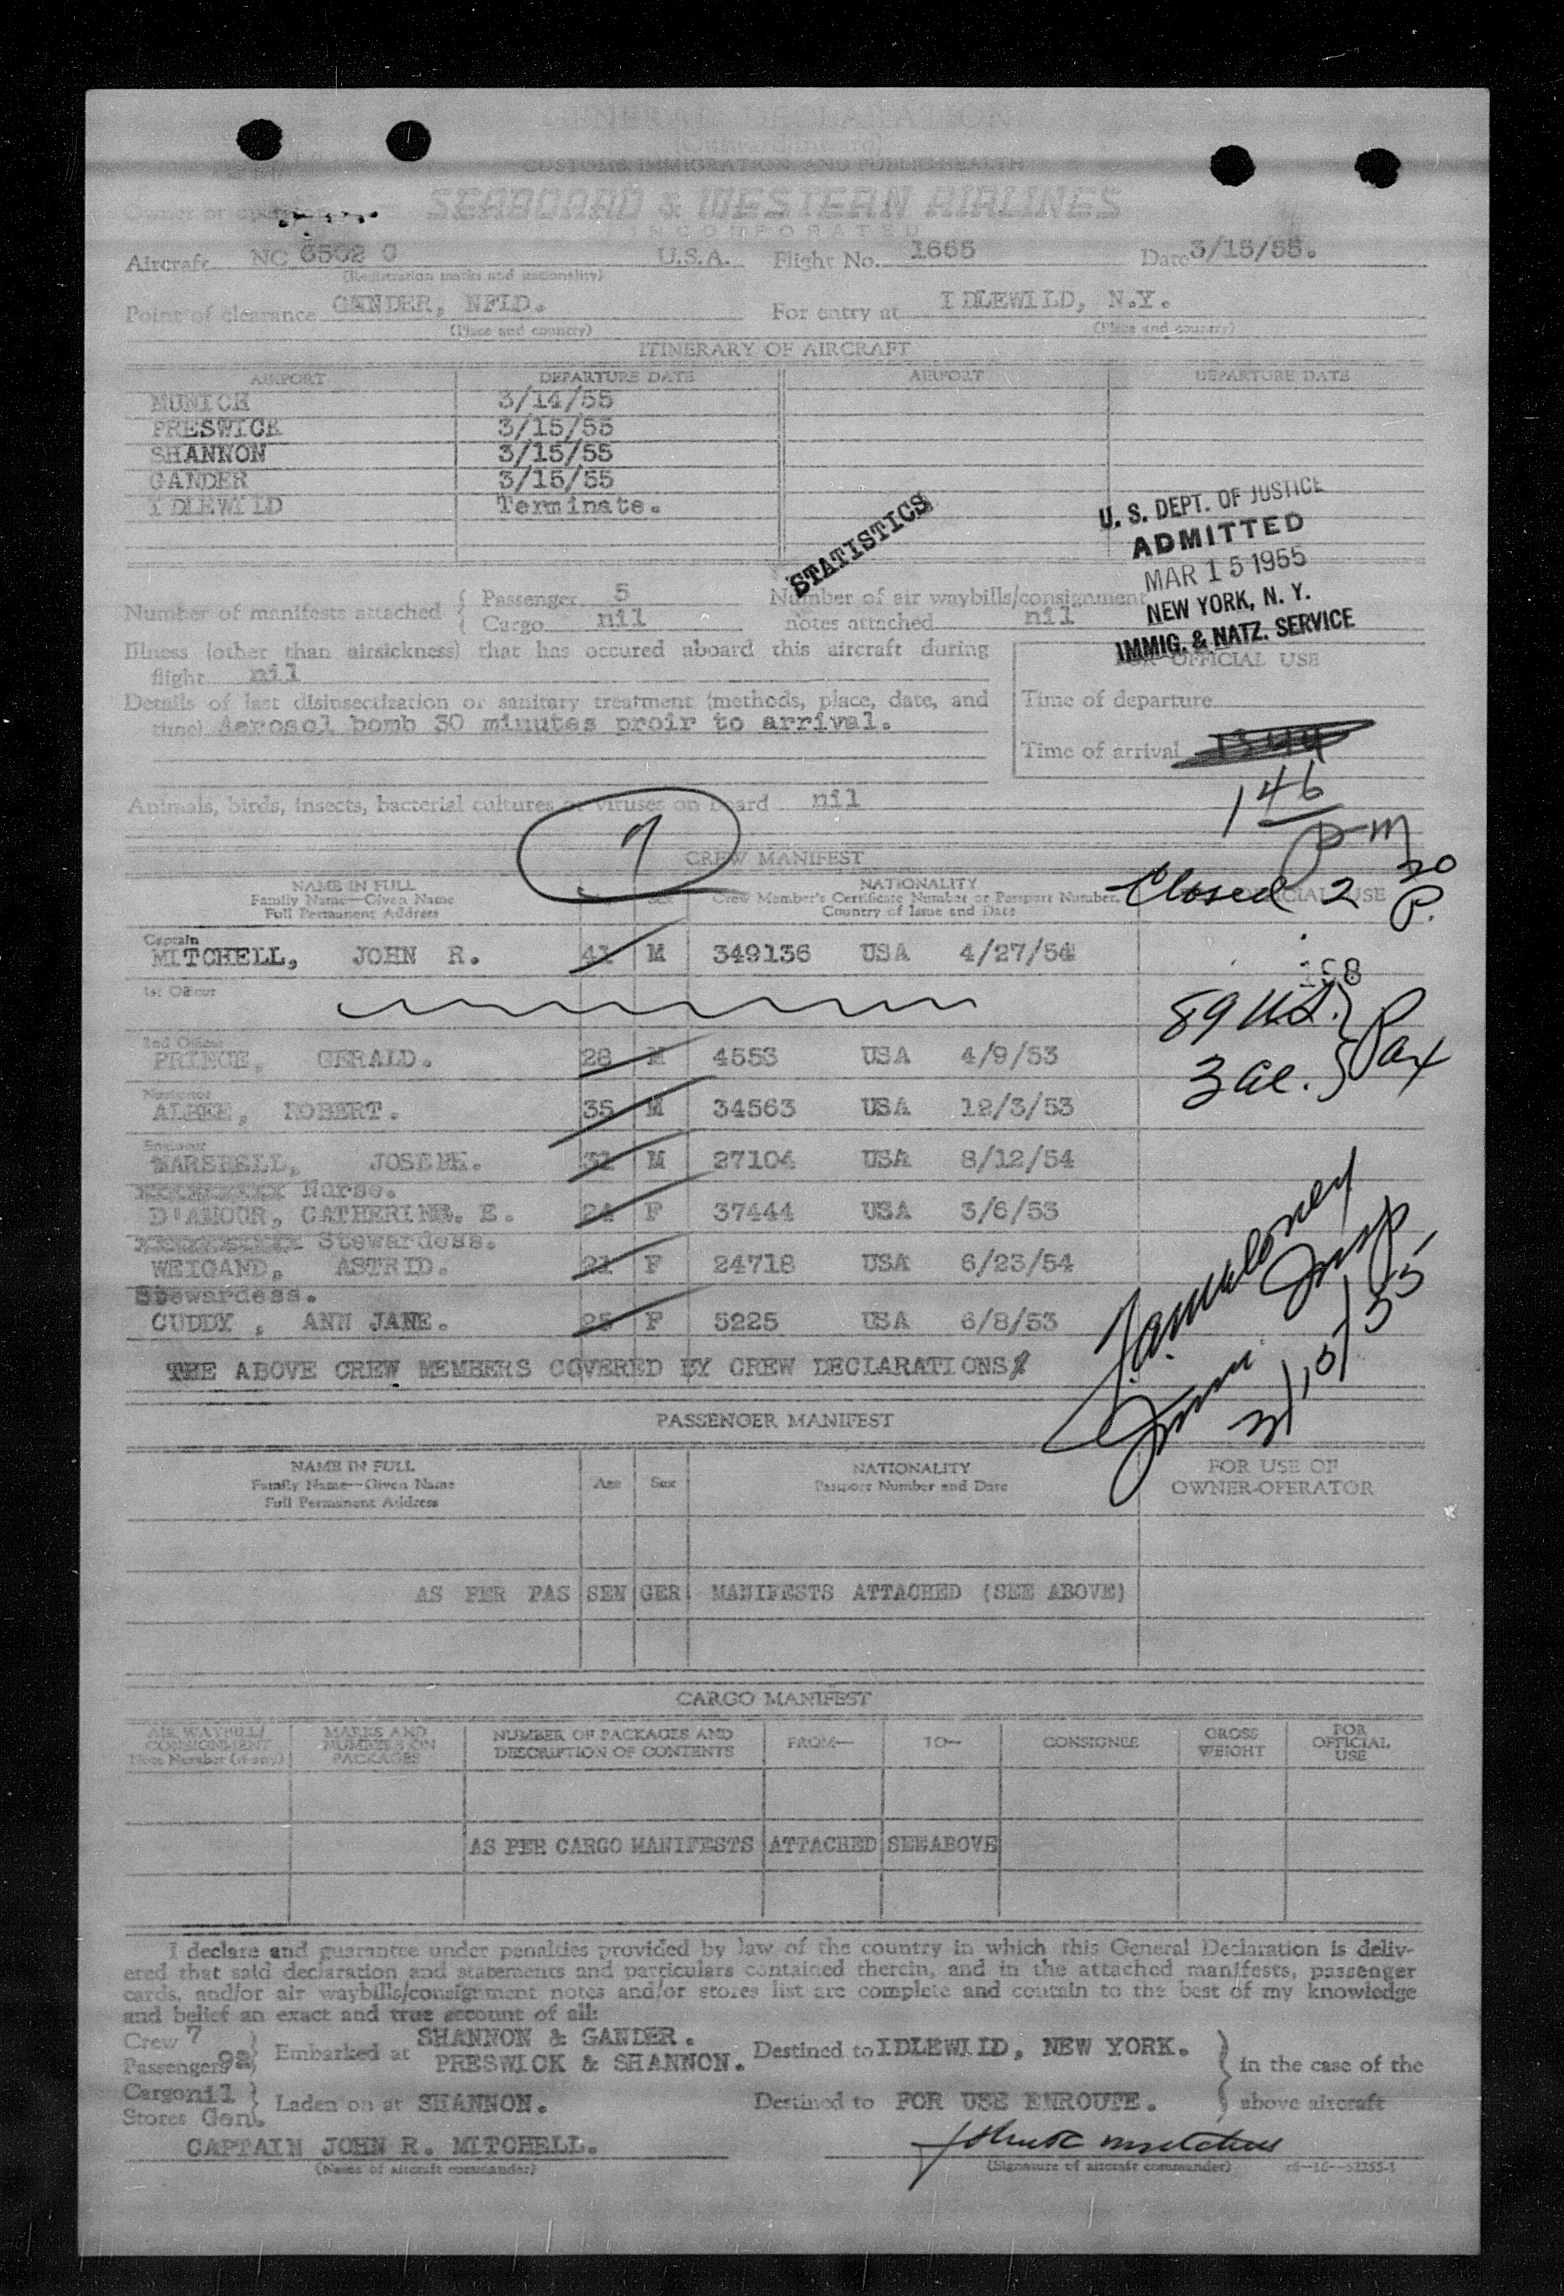 GENERAL DECLARATION
(Outward/Inward)
CUSTOMS, IMMIGRATION, AND PUBLIC HEALTH
Owner or operator
SEABOARD & WESTERN AIRLINES
INCORPORATED
Aircraft NC 6502 C U.S.A. Flight No. 1665 Date 3/15/55.
(Registration marks and nationality)
Point of clearance GANDER, NFLD. For entry at IDLEWILD, N.Y.
(Place and country) (Place and country)
ITINERARY OF AIRCRAFT
AIRPORT DEPARTURE DATE AIRPORT DEPARTURE DATE
MUNICH 3/14/55
PRESWICK 3/15/55
SHANNON 3/15/55
GANDER 3/15/55
IDLEWILD Terminate.
STATISTICS
U. S. DEPT. OF JUSTICE
ADMITTED
MAR 15 1955
NEW YORK, N. Y.
IMMIG. & NATZ. SERVICE
Number of manifests attached { Passenger 5 Number of air waybills/consignment
Cargo nil notes attached nil
Illness (other than airsickness) that has occured aboard this aircraft during
flight nil
FOR OFFICIAL USE
Details of last disinsectization or sanitary treatment (methods, place, date, and
time) Aerosol bomb 30 minutes proir to arrival.
Time of departure
Time of arrival 1344
146
Pm
Animals, birds, insects, bacterial cultures or viruses on board nil
7
CREW MANIFEST
NAME IN FULL
Family Name—Given Name
Full Permanent Address
Age Sex
NATIONALITY
Crew Member's Certificate Number or Passport Number,
Country of Issue and Date
OFFICIAL USE
Closed 2 20 P.
Captain
MITCHELL, JOHN R. 41 M 349136 USA 4/27/54
1st Officer
158
89 U.S. } Pax
3 al.
2nd Officer
PRINCE, GERALD. 28 M 4553 USA 4/9/53
Navigator
ALBEE, ROBERT. 35 M 34563 USA 12/3/53
Engineer
MARSHELL, JOSEPH. 31 M 27104 USA 8/12/54
Nurse.
D'AMOUR, CATHERINE. E. 24 F 37444 USA 3/6/53
Stewardess.
WEIGAND, ASTRID. 21 F 24718 USA 6/23/54
Stewardess.
CUDDY , ANN JANE. 25 F 5225 USA 6/8/53
Imm. Insp
THE ABOVE CREW MEMBERS COVERED BY CREW DECLARATIONS
PASSENGER MANIFEST
NAME IN FULL
Family Name—Given Name
Full Permanent Address
Age Sex
NATIONALITY
Passport Number and Date
FOR USE OF
OWNER-OPERATOR
AS PER PAS SEN GER MANIFESTS ATTACHED (SEE ABOVE)
CARGO MANIFEST
AIR WAYBILL/
CONSIGNMENT
Note Number (if any)
MARKS AND
NUMBERS ON
PACKAGES
NUMBER OF PACKAGES AND
DESCRIPTION OF CONTENTS
FROM— TO— CONSIGNEE
GROSS
WEIGHT
FOR
OFFICIAL
USE
AS PER CARGO MANIFESTS ATTACHED SEE ABOVE
I declare and guarantee under penalties provided by law of the country in which this General Declaration is deliv-
ered that said declaration and statements and particulars contained therein, and in the attached manifests, passenger
cards, and/or air waybills/consignment notes and/or stores list are complete and contain to the best of my knowledge
and belief an exact and true account of all:
Crew 7 } Embarked at SHANNON & GANDER. Destined to IDLEWILD, NEW YORK. } in the case of the
Passengers 92 PRESWICK & SHANNON.
Cargo nil } Laden on at SHANNON. Destined to FOR USE ENROUTE. } above aircraft
Stores Gen.
CAPTAIN JOHN R. MITCHELL. John R Mitchell
(Name of aircraft commander) (Signature of aircraft commander)